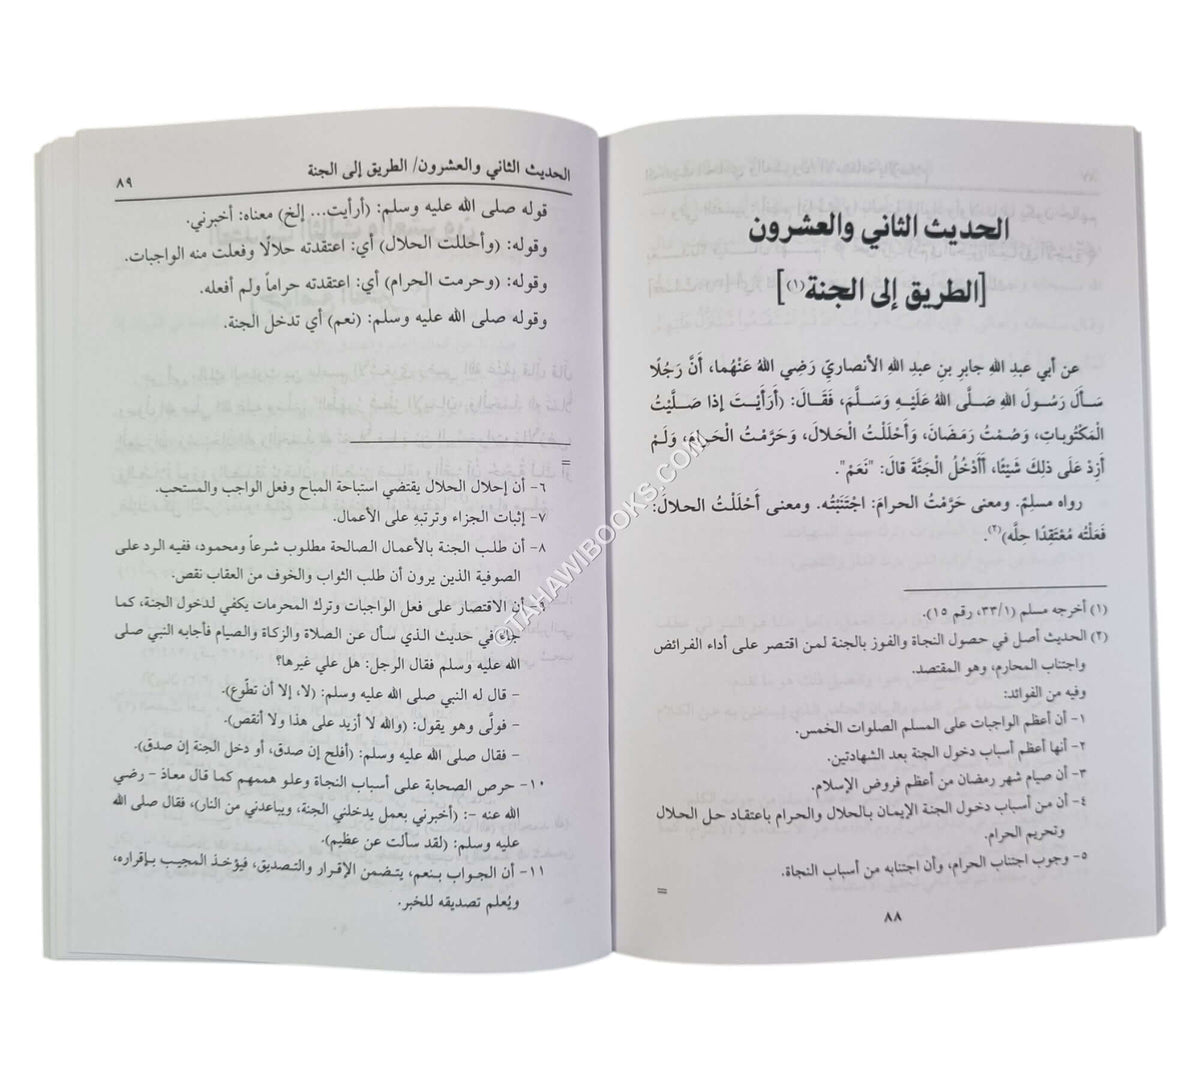 الحديث الثاني والعشرون
[الطريق إلى الجنة(١)]
عن أبي عبدِ اللهِ جابرِ بنِ عبدِ اللهِ الأنصاريِّ رَضِي اللهُ عَنْهُما، أَنَّ رَجُلًا
سَأَلَ رَسُولَ اللهِ صَلَّى اللهُ عَلَيْهِ وَسَلَّمَ، فَقَالَ: (أَرَأَيْتَ إذا صَلَّيْتُ
الْمَكْتُوباتِ، وَصُمْتُ رَمَضَانَ، وَأَحْلَلْتُ الحَلالَ، وَحَرَّمْتُ الْحَرامَ، وَلَمْ
أَزِدْ عَلَى ذلِكَ شَيْئًا، أَأَدْخُلُ الْجَنَّةَ قالَ: "نَعَمْ".
رواه مسلِمٌ. ومعنى حَرَّمْتُ الحرامَ: اجْتَنَبْتُه. ومعنى أَحْلَلْتُ الحلالَ:
فَعَلْتُه مُعْتَقِدًا حِلَّه)(٢).
(١) أخرجه مسلم (٣٣/١، رقم ١٥).
(٢) الحديث أصل في حصول النجاة والفوز بالجنة لمن اقتصر على أداء الفرائض
واجتناب المحارم، وهو المقتصد.
وفيه من الفوائد:
١- أن أعظم الواجبات على المسلم الصلوات الخمس.
٢- أنها أعظم أسباب دخول الجنة بعد الشهادتين.
٣- أن صيام شهر رمضان من أعظم فروض الإسلام.
٤- أن من أسباب دخول الجنة الإيمان بالحلال والحرام باعتقاد حل الحلال
وتحريم الحرام.
٥- وجوب اجتناب الحرام، وأن اجتنابه من أسباب النجاة.
=
٨٨
الحديث الثاني والعشرون/ الطريق إلى الجنة ٨٩
قوله صلى الله عليه وسلم: (أرأيت... إلخ) معناه: أخبرني.
وقوله: (وأحللت الحلال) أي: اعتقدته حلالًا وفعلت منه الواجبات.
وقوله: (وحرمت الحرام) أي: اعتقدته حراماً ولم أفعله.
وقوله صلى الله عليه وسلم: (نعم) أي تدخل الجنة.
=
٦- أن إحلال الحلال يقتضي استباحة المباح وفعل الواجب والمستحب.
٧- إثبات الجزاء وترتبه على الأعمال.
٨- أن طلب الجنة بالأعمال الصالحة مطلوب شرعاً ومحمود، ففيه الرد على
الصوفية الذين يرون أن طلب الثواب والخوف من العقاب نقص.
٩- أن الاقتصار على فعل الواجبات وترك المحرمات يكفي لدخول الجنة، كما
جاء في حديث الذي سأل عن الصلاة والزكاة والصيام فأجابه النبي صلى
الله عليه وسلم فقال الرجل: هل علي غيرها؟
- قال له النبي صلى الله عليه وسلم: (لا، إلا أن تطّوع).
- فولَّى وهو يقول: (والله لا أزيد على هذا ولا أنقص).
- فقال صلى الله عليه وسلم: (أفلح إن صدق، أو دخل الجنة إن صدق).
١٠- حرص الصحابة على أسباب النجاة وعلو هممهم كما قال معاذ - رضي
الله عنه -: (أخبرني بعمل يدخلني الجنة، ويباعدني من النار)، فقال صلى الله
عليه وسلم: (لقد سألت عن عظيم).
١١- أن الجواب بنعم، يتضمن الإقرار والتصديق، فيؤخذ المجيب بإقراره،
ويُعلم تصديقه للخبر.
©TAHAWIBOOKS.COM